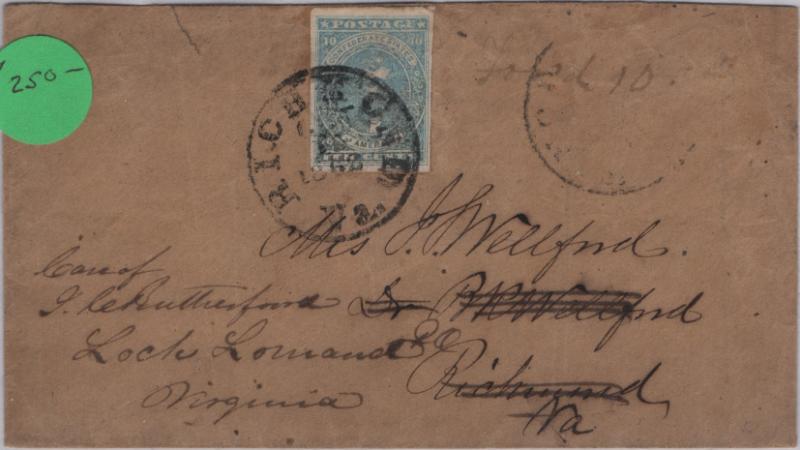 250-
POSTAGE
10 10
CONFEDERATE STATES
OF AMERICA
TEN CENTS
RICHMOND
Va.
Forwd 10.
Mrs J. S. Wellford.
Care of
J. C. Rutherfoord
Dr B R Wellford
Loch Lomand P.O.
Richmond
Virginia
Va